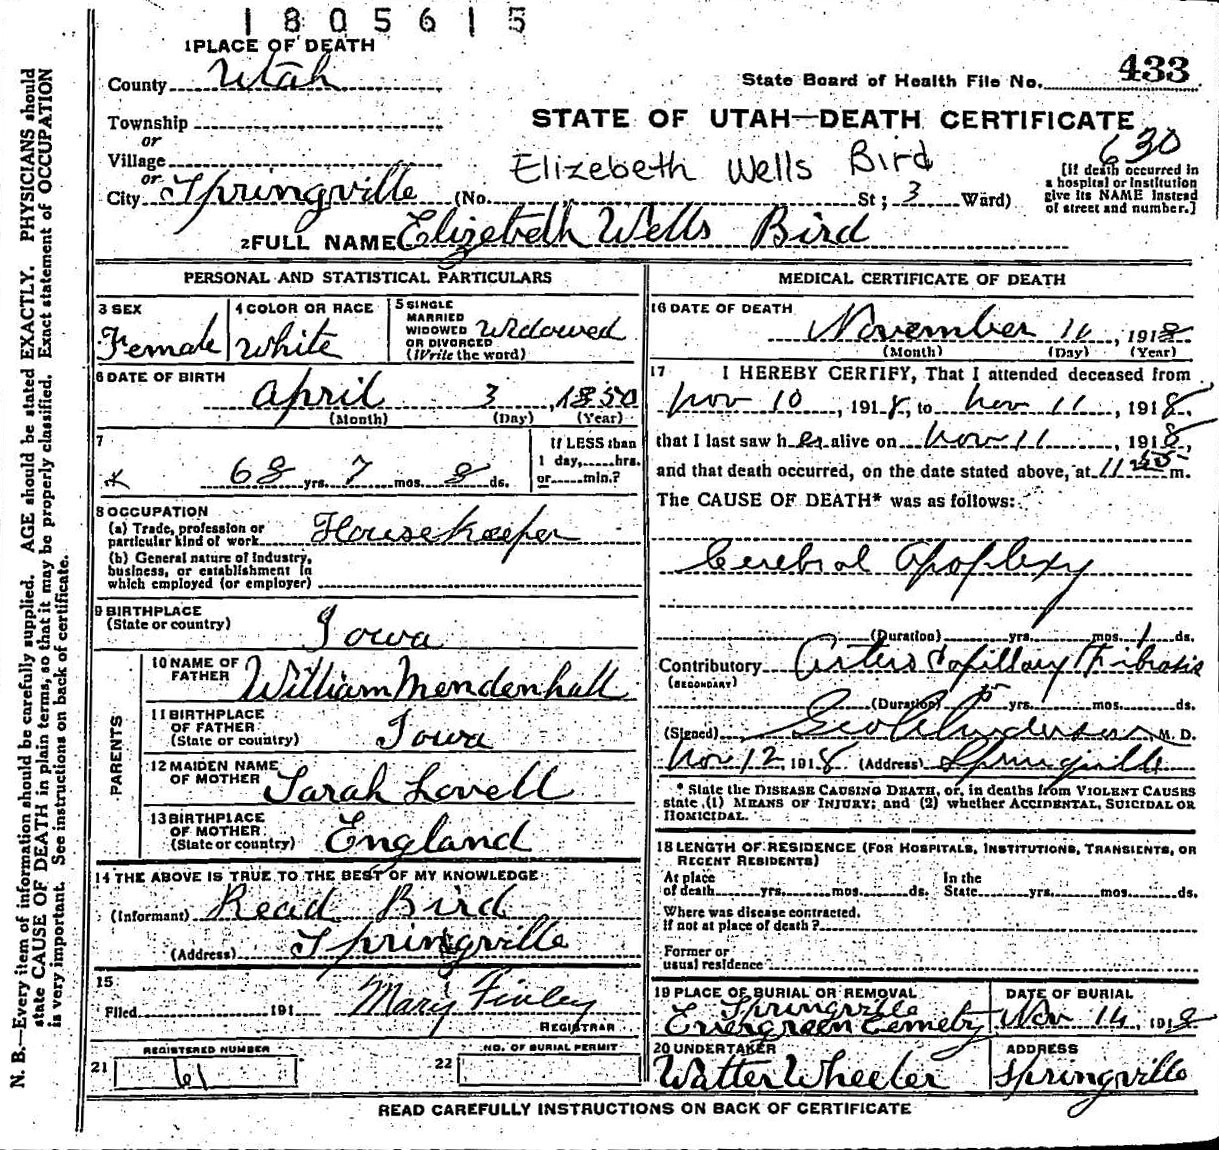 1805615
1 PLACE OF DEATH
County Utah
State Board of Health File No. 433
Township
or
STATE OF UTAH—DEATH CERTIFICATE
630
Village
or
Elizebeth Wells Bird
[If death occurred in a hospital or institution give its NAME instead of street and number.]
City Springville (No. St; 3 Ward)
2 FULL NAME Elizebeth Wells Bird
PERSONAL AND STATISTICAL PARTICULARS
3 SEX
Female
4 COLOR OR RACE
White
5 SINGLE
MARRIED
WIDOWED
OR DIVORCED
(Write the word)
Widowed
6 DATE OF BIRTH
April 3, 1850
(Month) (Day) (Year)
7
68 yrs. 7 mos. 8 ds.
If LESS than
1 day, hrs.
or min.?
8 OCCUPATION
(a) Trade, profession or
particular kind of work Housekeeper
(b) General nature of industry,
business, or establishment in
which employed (or employer)
9 BIRTHPLACE
(State or country)
Iowa
PARENTS
10 NAME OF
FATHER William Mendenhall
11 BIRTHPLACE
OF FATHER
(State or country) Iowa
12 MAIDEN NAME
OF MOTHER Sarah Lovell
13 BIRTHPLACE
OF MOTHER
(State or country) England
14 THE ABOVE IS TRUE TO THE BEST OF MY KNOWLEDGE
(Informant) Read Bird
(Address) Springville
15
Filed 191 Mary Finley
REGISTRAR
REGISTERED NUMBER
21 61
NO. OF BURIAL PERMIT
22
MEDICAL CERTIFICATE OF DEATH
16 DATE OF DEATH
November 11, 1918
(Month) (Day) (Year)
17 I HEREBY CERTIFY, That I attended deceased from
Nov 10, 1918, to Nov 11, 1918,
that I last saw her alive on Nov 11, 1918,
and that death occurred, on the date stated above, at 11 55 m.
The CAUSE OF DEATH* was as follows:
Cerebral Apoplexy
(Duration) yrs. mos. 1 ds.
Contributory Arterio Capillary Fibrosis
(SECONDARY)
(Duration) 5 yrs. mos. ds.
(Signed) Geo Anderson, M. D.
Nov 12, 1918 (Address) Springville
* State the DISEASE CAUSING DEATH, or, in deaths from VIOLENT CAUSES
state (1) MEANS OF INJURY; and (2) whether ACCIDENTAL, SUICIDAL OR
HOMICIDAL.
18 LENGTH OF RESIDENCE (FOR HOSPITALS, INSTITUTIONS, TRANSIENTS, OR
RECENT RESIDENTS)
At place In the
of death yrs. mos. ds. State yrs. mos. ds.
Where was disease contracted,
if not at place of death?
Former or
usual residence
19 PLACE OF BURIAL OR REMOVAL
Springville
Evergreen Cemetry
DATE OF BURIAL
Nov 14, 1918
20 UNDERTAKER
Walter Wheeler
ADDRESS
Springville
READ CAREFULLY INSTRUCTIONS ON BACK OF CERTIFICATE
N. B.—Every item of information should be carefully supplied. AGE should be stated EXACTLY. PHYSICIANS should
state CAUSE OF DEATH in plain terms, so that it may be properly classified. Exact statement of OCCUPATION
is very important. See instructions on back of certificate.